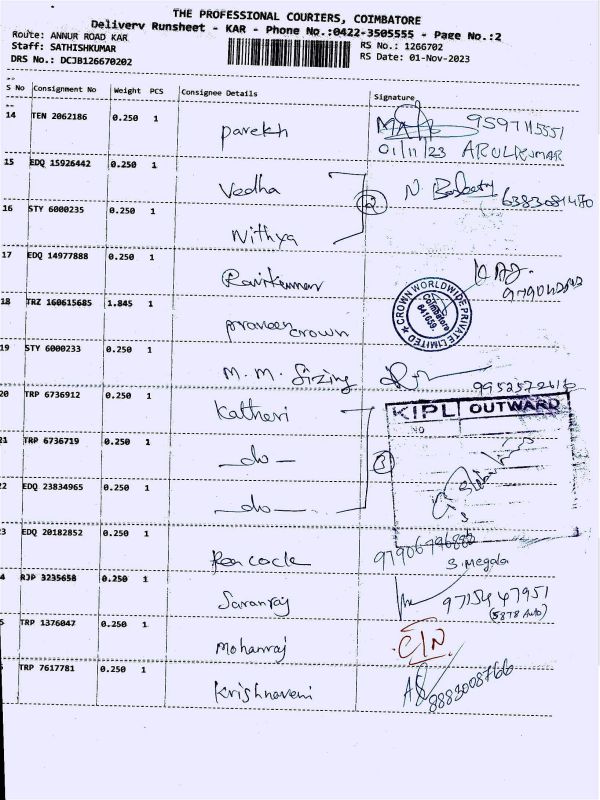 THE PROFESSIONAL COURIERS, COIMBATORE
Delivery Runsheet - KAR - Phone No.:0422-3505555 - Page No.:2
Route: ANNUR ROAD KAR
Staff: SATHISHKUMAR
RS No.: 1266702
DRS No.: DCJB126670202
RS Date: 01-Nov-2023
S No Consignment No Weight PCS Consignee Details Signature
14 TEN 2062186 0.250 1 parekh 9597115551
01/11/23 ARULKUMAR
15 EDQ 15926442 0.250 1 Vedha 2 6383081470
16 STY 6000235 0.250 1 Nithya
17 EDQ 14977888 0.250 1 Ravikumar
18 TRZ 160615685 1.845 1 praveen crown
CROWN WORLDWIDE PRIVATE LIMITED
Coimbatore
641659.
19 STY 6000233 0.250 1 M. M. Sizing
20 TRP 6736912 0.250 1 Katheri
KIPL OUTWARD
NO
21 TRP 6736719 0.250 1 -do- 3
22 EDQ 23834965 0.250 1 -do-
23 EDQ 20182852 0.250 1 Peacock
S. Megala
24 RJP 3235658 0.250 1 Saranraj 9715447951
(5878 Auto)
25 TRP 1376047 0.250 1 Mohanraj C/N.
26 TRP 7617781 0.250 1 Krishnaveni 8883008766